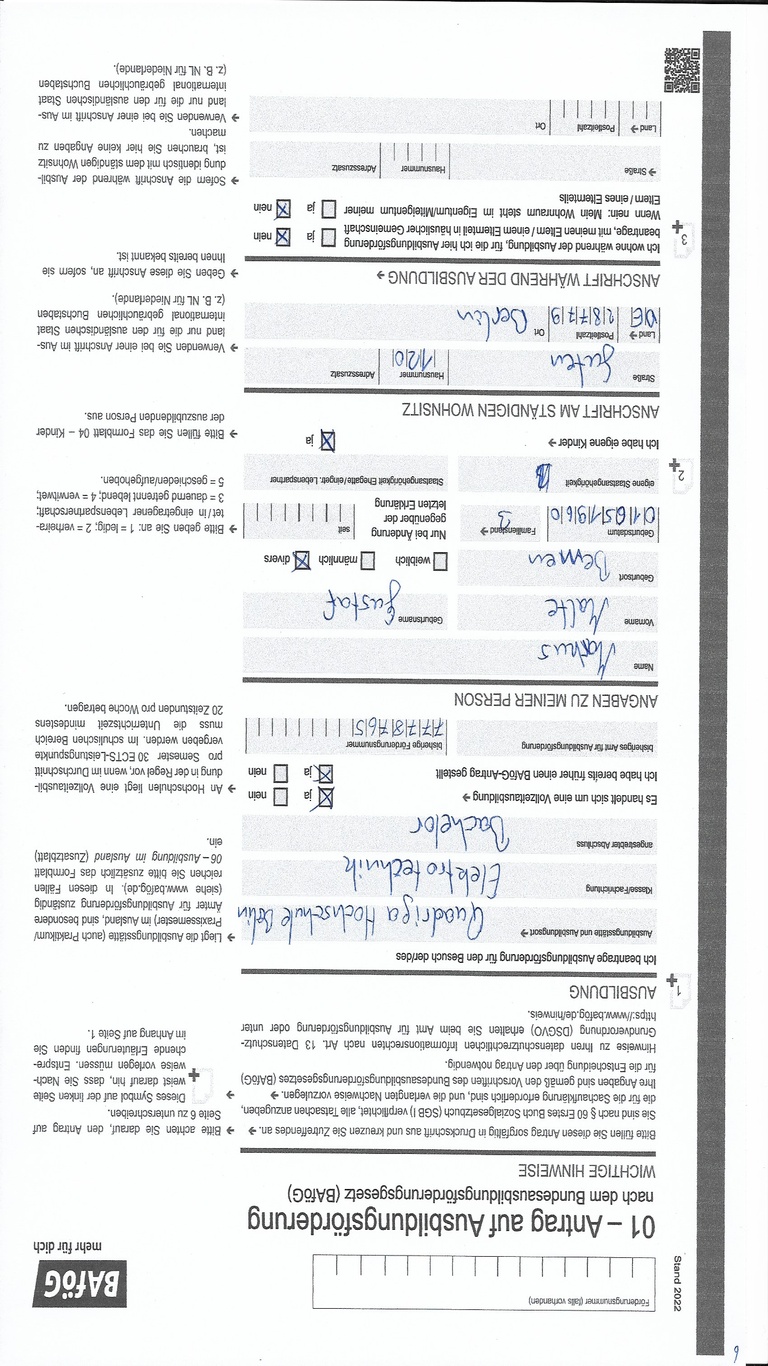 Stand 2022
Förderungsnummer (falls vorhanden)
BAföG
mehr für dich
01 – Antrag auf Ausbildungsförderung
nach dem Bundesausbildungsförderungsgesetz (BAföG)
WICHTIGE HINWEISE
Bitte füllen Sie diesen Antrag sorgfältig in Druckschrift aus und kreuzen Sie Zutreffendes an. →
Sie sind nach § 60 Erstes Buch Sozialgesetzbuch (SGB I) verpflichtet, alle Tatsachen anzugeben,
die für die Sachaufklärung erforderlich sind, und die verlangten Nachweise vorzulegen. →
Ihre Angaben sind gemäß den Vorschriften des Bundesausbildungsförderungsgesetzes (BAföG)
für die Entscheidung über den Antrag notwendig.
Hinweise zu Ihren datenschutzrechtlichen Informationsrechten nach Art. 13 Datenschutz-
Grundverordnung (DSGVO) erhalten Sie beim Amt für Ausbildungsförderung oder unter
https://www.bafög.de/hinweis.
→ Bitte achten Sie darauf, den Antrag auf
Seite 6 zu unterschreiben.
→ Dieses Symbol auf der linken Seite
weist darauf hin, dass Sie Nach-
weise vorlegen müssen. Entspre-
chende Erläuterungen finden Sie
im Anhang auf Seite 1.
1
AUSBILDUNG
Ich beantrage Ausbildungsförderung für den Besuch der/des
Ausbildungsstätte und Ausbildungsort → Quadriga Hochschule Berlin
Klasse/Fachrichtung Elektrotechnik
angestrebter Abschluss Bachelor
Es handelt sich um eine Vollzeitausbildung → ja nein
Ich habe bereits früher einen BAföG-Antrag gestellt ja nein
bisheriges Amt für Ausbildungsförderung
bisherige Förderungsnummer 7778765
→ Liegt die Ausbildungsstätte (auch Praktikum/
Praxissemester) im Ausland, sind besondere
Ämter für Ausbildungsförderung zuständig
(siehe www.bafög.de). In diesen Fällen
reichen Sie bitte zusätzlich das Formblatt
06 – Ausbildung im Ausland (Zusatzblatt)
ein.
→ An Hochschulen liegt eine Vollzeitausbil-
dung in der Regel vor, wenn im Durchschnitt
pro Semester 30 ECTS-Leistungspunkte
vergeben werden. Im schulischen Bereich
muss die Unterrichtszeit mindestens
20 Zeitstunden pro Woche betragen.
ANGABEN ZU MEINER PERSON
Name
Vorname Malte
Geburtsname Gustaf
Geburtsort Bemen
weiblich männlich divers
Geburtsdatum 01051960
Familienstand → 3
Nur bei Änderung
gegenüber der
letzten Erklärung
seit
2
eigene Staatsangehörigkeit
Staatsangehörigkeit Ehegatte/eingetr. Lebenspartner
Ich habe eigene Kinder → ja
→ Bitte geben Sie an: 1 = ledig; 2 = verheira-
tet / in eingetragener Lebenspartnerschaft;
3 = dauernd getrennt lebend; 4 = verwitwet;
5 = geschieden/aufgehoben.
→ Bitte füllen Sie das Formblatt 04 – Kinder
der auszubildenden Person aus.
ANSCHRIFT AM STÄNDIGEN WOHNSITZ
Straße
Hausnummer 120
Adresszusatz
Land → DE
Postleitzahl 28779
Ort Berlin
→ Verwenden Sie bei einer Anschrift im Aus-
land nur die für den ausländischen Staat
international gebräuchlichen Buchstaben
(z. B. NL für Niederlande).
ANSCHRIFT WÄHREND DER AUSBILDUNG →
→ Geben Sie diese Anschrift an, sofern sie
Ihnen bereits bekannt ist.
3
Ich wohne während der Ausbildung, für die ich hier Ausbildungsförderung
beantrage, mit meinen Eltern / einem Elternteil in häuslicher Gemeinschaft ja nein
Wenn nein: Mein Wohnraum steht im Eigentum/Miteigentum meiner
Eltern / eines Elternteils ja nein
→ Straße
Hausnummer
Adresszusatz
Land →
Postleitzahl
Ort
→ Sofern die Anschrift während der Ausbil-
dung identisch mit dem ständigen Wohnsitz
ist, brauchen Sie hier keine Angaben zu
machen.
→ Verwenden Sie bei einer Anschrift im Aus-
land nur die für den ausländischen Staat
international gebräuchlichen Buchstaben
(z. B. NL für Niederlande).